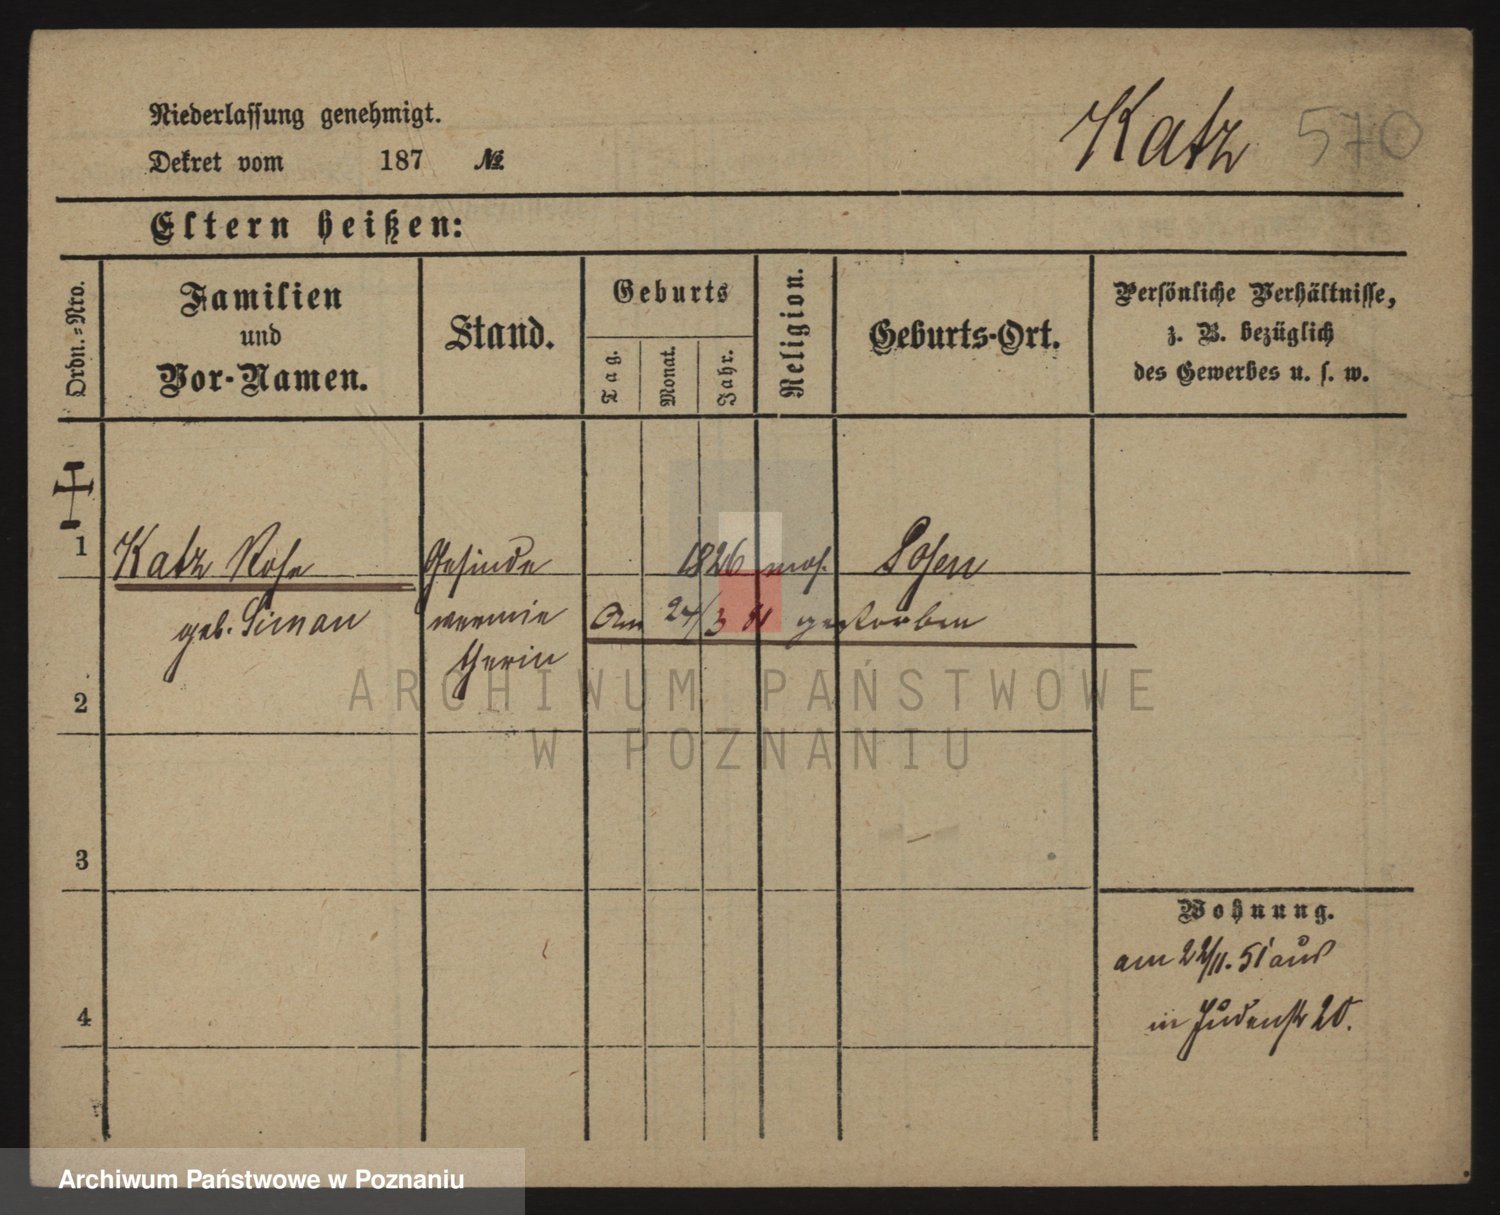 Niederlassung genehmigt.
Dekret vom 187 №
Katz 570
Eltern heißen:
Ordn.-Nro.
Familien
und
Vor-Namen.
Stand.
Geburts
Tag.
Monat.
Jahr.
Religion.
Geburts-Ort.
Persönliche Verhältnisse,
z. B. bezüglich
des Gewerbes u. s. w.
1 Katz Rosa Gesinde 1826 mos. Posen
geb. Simon vermie Am 24/3 91 gestorben
therin
2
3
4
Wohnung.
am 22/11. 51 aus
in Judenstr 20.
ARCHIWUM PAŃSTWOWE
W POZNANIU
Archiwum Państwowe w Poznaniu